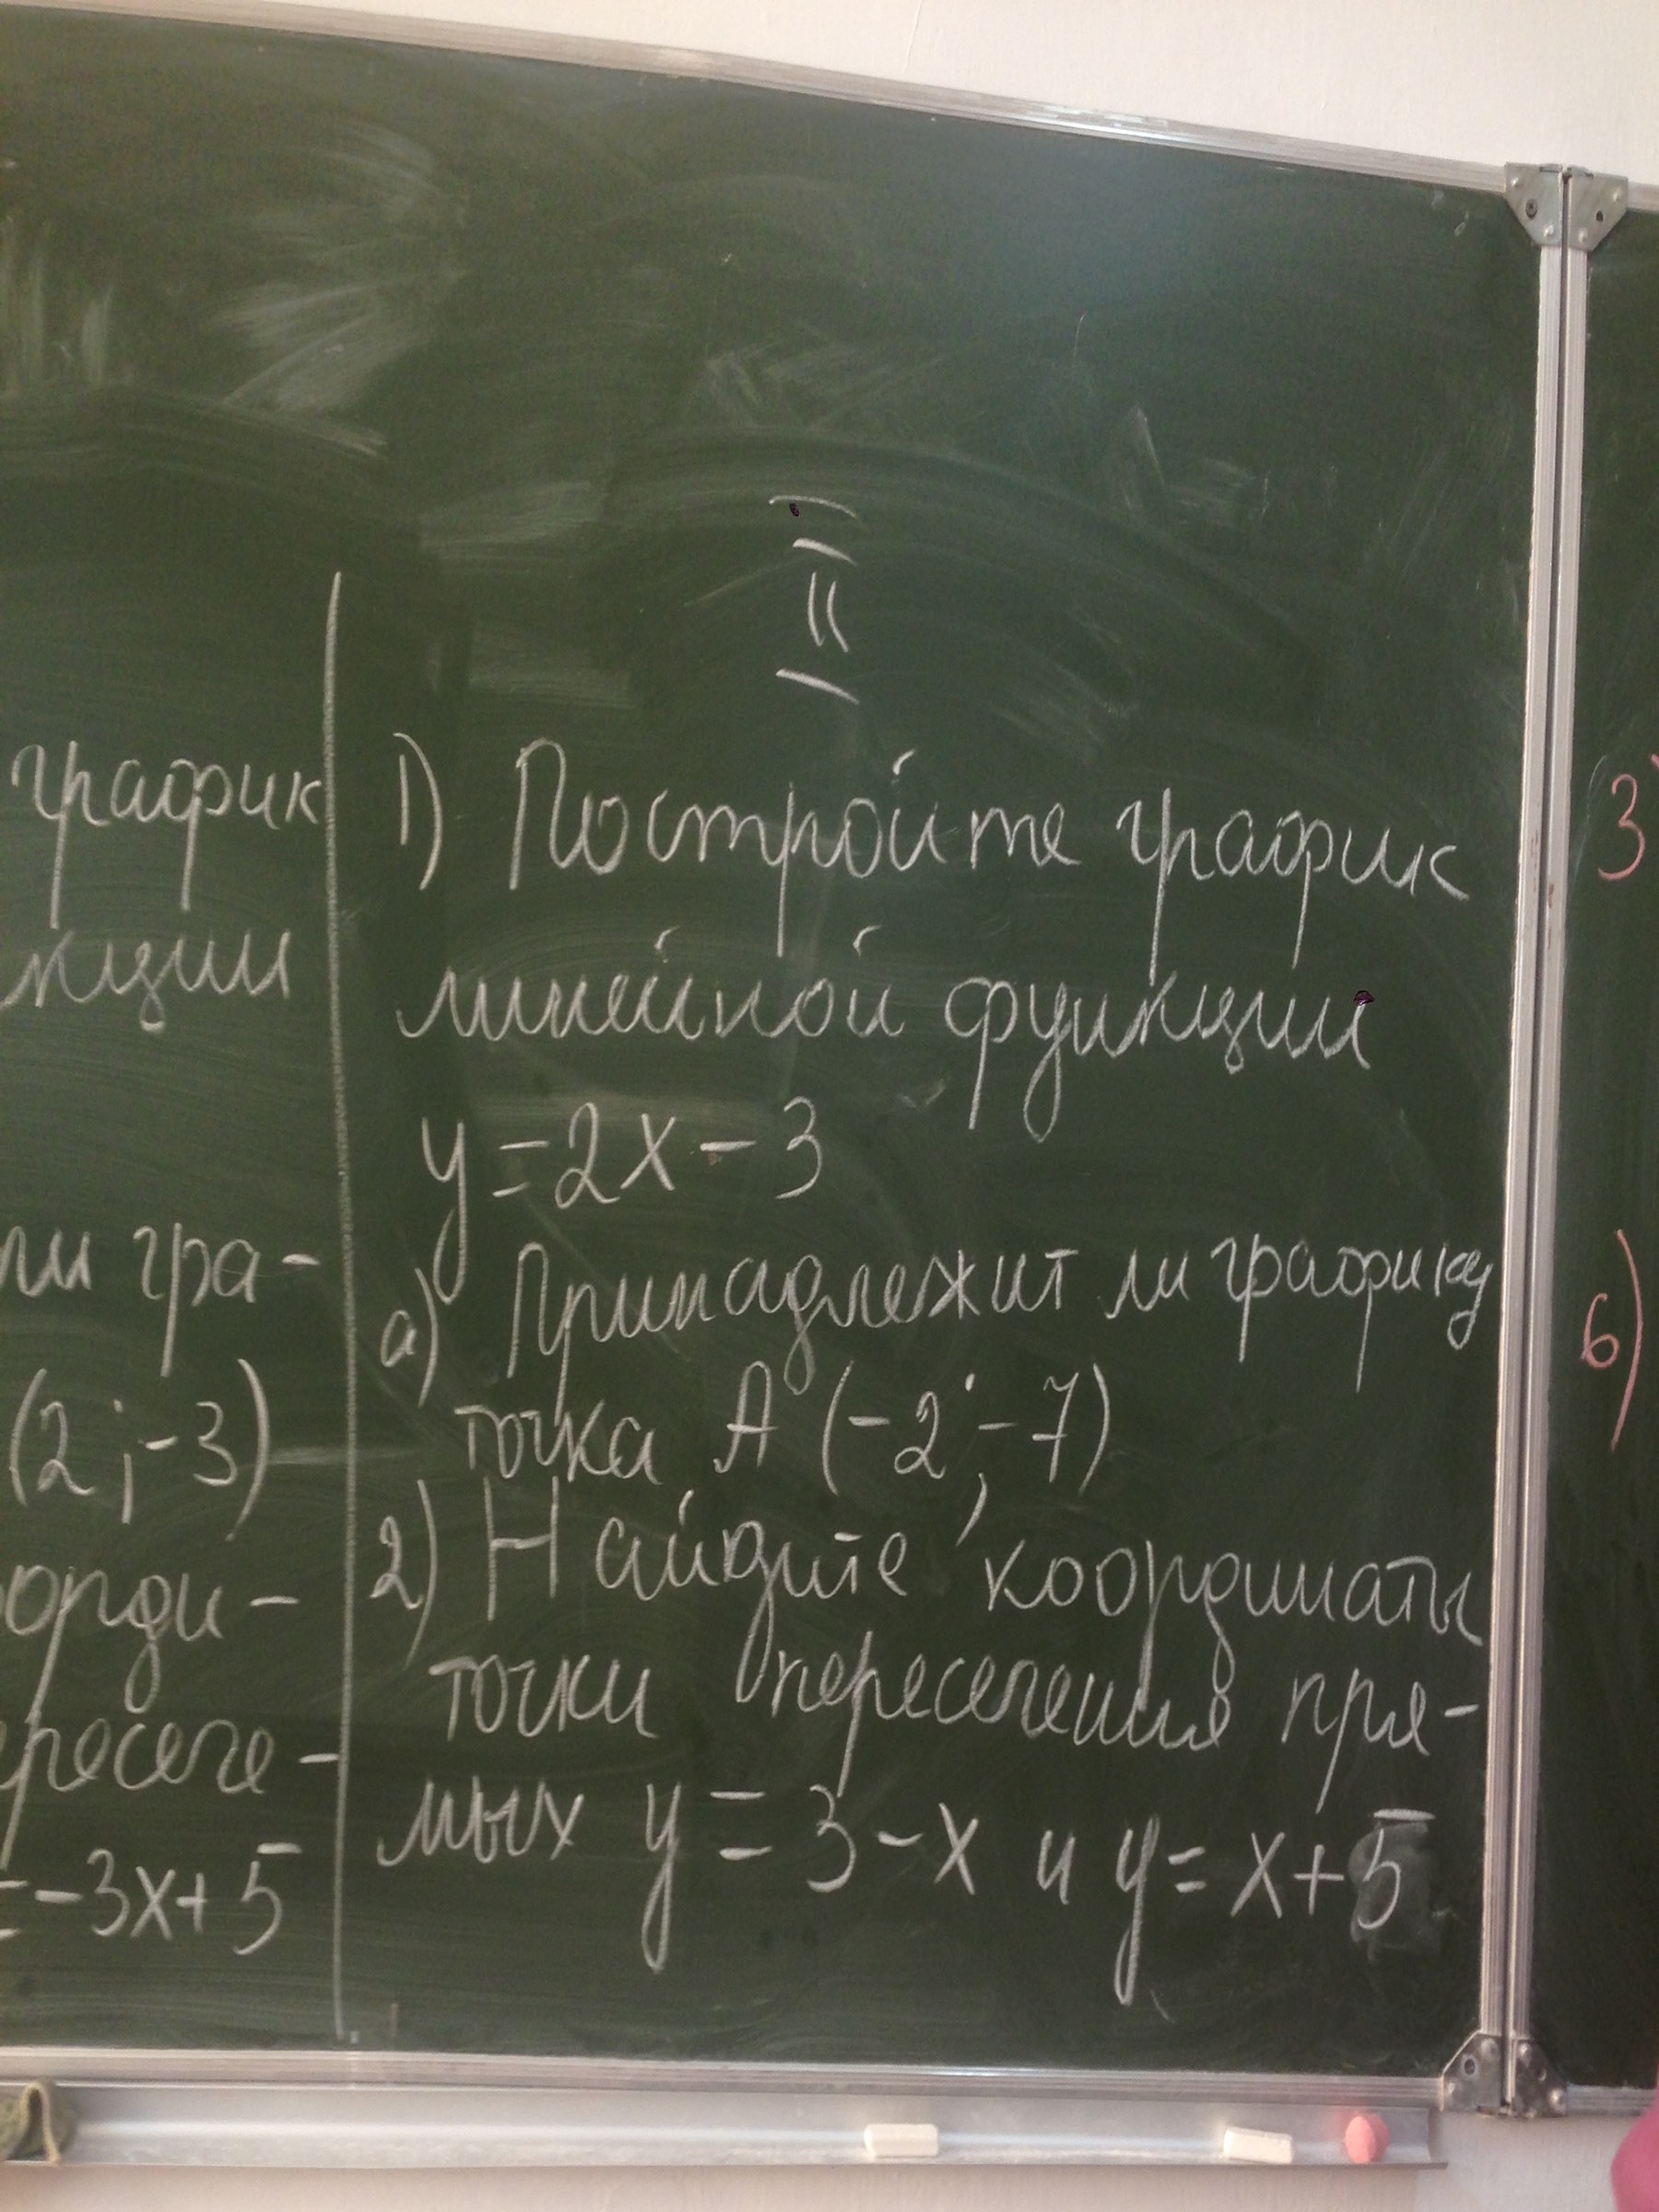 график
кции
ли гра-
(2;-3)
орди-
ересече-
=-3x+5
II
1) Постройте график
линейной функции
y=2x-3
а) Принадлежит ли графику
точка A (-2;-7)
2) Найдите координаты
точки пересечения пря-
мых y=3-x и y=x+5
3)
б)